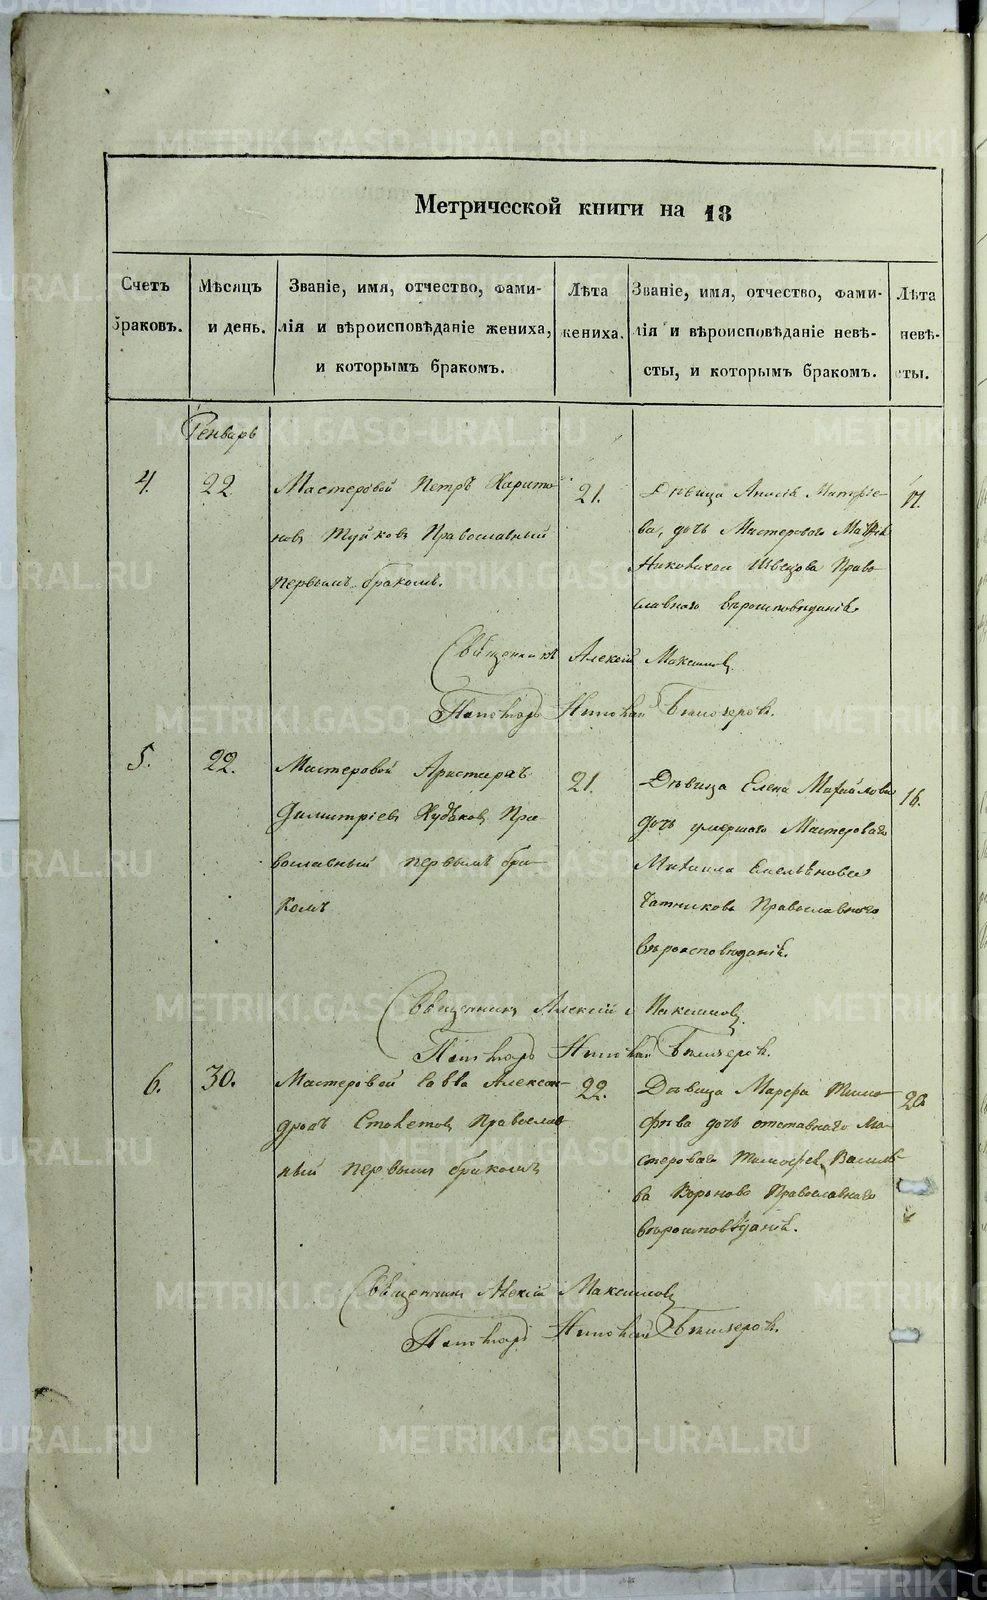 Метрической книги на 18
Счетъ браковъ.
Мѣсяцъ и день.
Званіе, имя, отчество, фами-
лія и вѣроисповѣданіе жениха,
и которымъ бракомъ.
Лѣта жениха.
Званіе, имя, отчество, фами-
лія и вѣроисповѣданіе невѣ-
сты, и которымъ бракомъ.
Лѣта невѣ-
сты.
Генварь
4.
22
Мастеровой Петръ Харито-
новъ Православный
первымъ бракомъ.
21.
Дѣвица Матфіе-
ва, дочь Мастероваго
Швецова Право-
славнаго вѣроисповѣданія
17.
Священникъ Алексій Максимовъ
Пономарь Николай Бѣлозеровъ.
5.
22.
Мастеровой Аристархъ
Димитріевъ Худяковъ Пра-
вославный первымъ бра-
комъ
21.
Дѣвица Елена Михайлова
дочь умершаго Мастероваго
Михаила Емельянова
Православнаго
вѣроисповѣданія.
16.
Священникъ Алексій Максимовъ.
Пономарь Николай Бѣлозеровъ.
6.
30.
Мастеровой Савва Алексан-
дровъ Православ-
ный первымъ бракомъ
22.
Дѣвица Марфа Тимо-
фѣева дочь отставнаго Ма-
стероваго Тимофея Василь-
ва Воронова Православнаго
вѣроисповѣданія.
20
Священникъ Алексій Максимовъ
Пономарь Николай Бѣлозеровъ.
METRIKI.GASO-URAL.RU